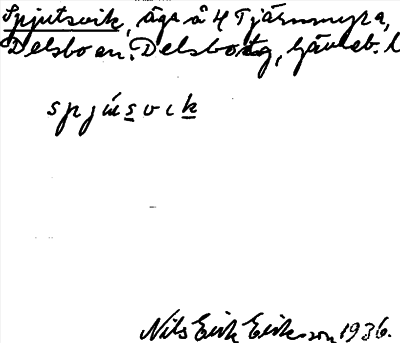 Spjutsvik, äga å 4 Tjärnmyra,
Delsbo sn. Delsbo tg, Gävleb. l
spjúsvik
Nils Erik Eriksson 1936.